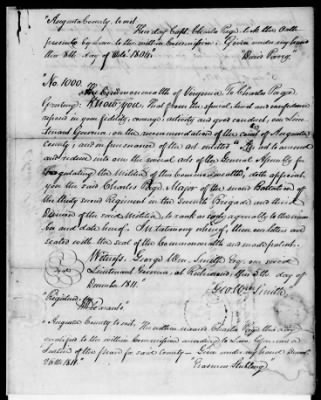 "Augusta County to wit
This day Capt. Charles Page took the Oath
prescribed by Law to the within Commission. Given under my hand
this 8th day of 1804."
"No 1000.
The Commonwealth of Virginia To Charles Page
Greeting: Know you, that from the special trust and confidence
reposed in your fidelity, courage, activity and good conduct, our Lieu
tenant Governor, on the recommendation of the court of Augusta
County, and in pursuance of the act entitled "An act to amend
and reduce into one the several acts of the General Assembly for
regulating the Militia of this Commonwealth," doth appoint
you the said Charles Page, Major of the second Battalion of
the thirty second Regiment in the Seventh Brigade and third
Division of the said Militia, to rank as such agreeably to the num
ber and date hereof. In testimony whereof, these our letters are
sealed with the seal of the Commonwealth and made patent.
Witness, George Wm. Smith Esq. our said
Lieutenant Governor, at Richmond, this 5th day of
December 1811."
Geo Wm Smith
"Registered
"Augusta County to wit, The within named Charles Page this day
qualified to the within Commission according to Law before me a
Justice of the peace for said county — Given under my hand
26th 1811."
"Erasmus Stribling"